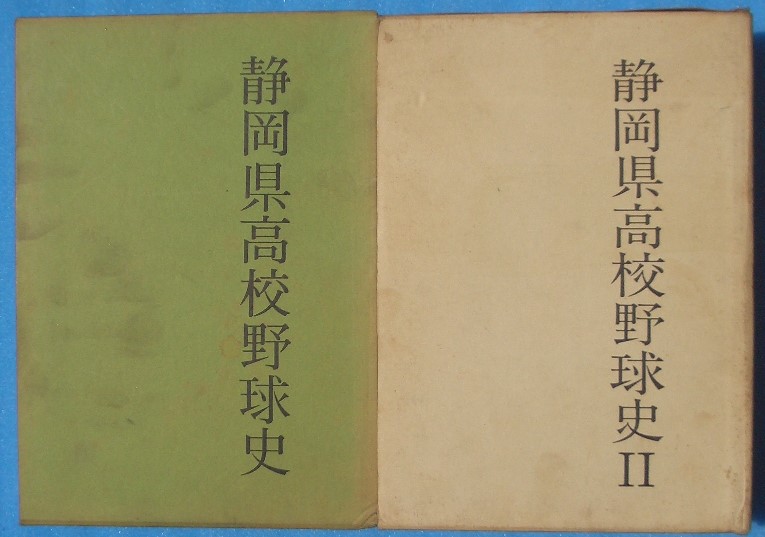 静岡県高校野球史
静岡県高校野球史II